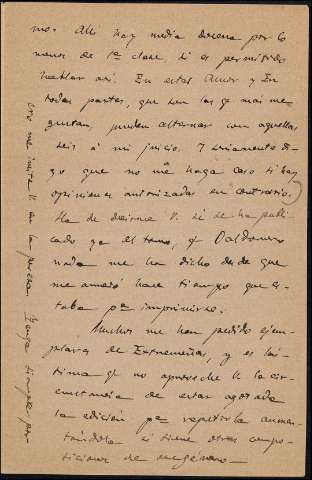 mos. Allí hay media docena por lo
menos de 1ª clase, si es permitido
hablar así. En estas Amor y En
todas partes, que son las q. más me
gustan, pueden alternar con aquellas
seis á mi juicio. Y seriamente di-
go que no me haga caso si hay
opiniones autorizadas en contrario.
Ha de decirme V. si se ha publi-
cado ya el tomo, qe Baldomero
nada me ha dicho desde que
me anunció hace tiempo que es-
taba pª imprimirse.
Muchos me han pedido ejem-
plares de Extremeñas, y es lás-
tima qe no aproveche V. la cir-
cunstancia de estar agotada
la edición pª repetirla aumen-
tándola si tiene otras compo-
siciones de ese género.
me imite V. en la pereza. Tenga siempre por